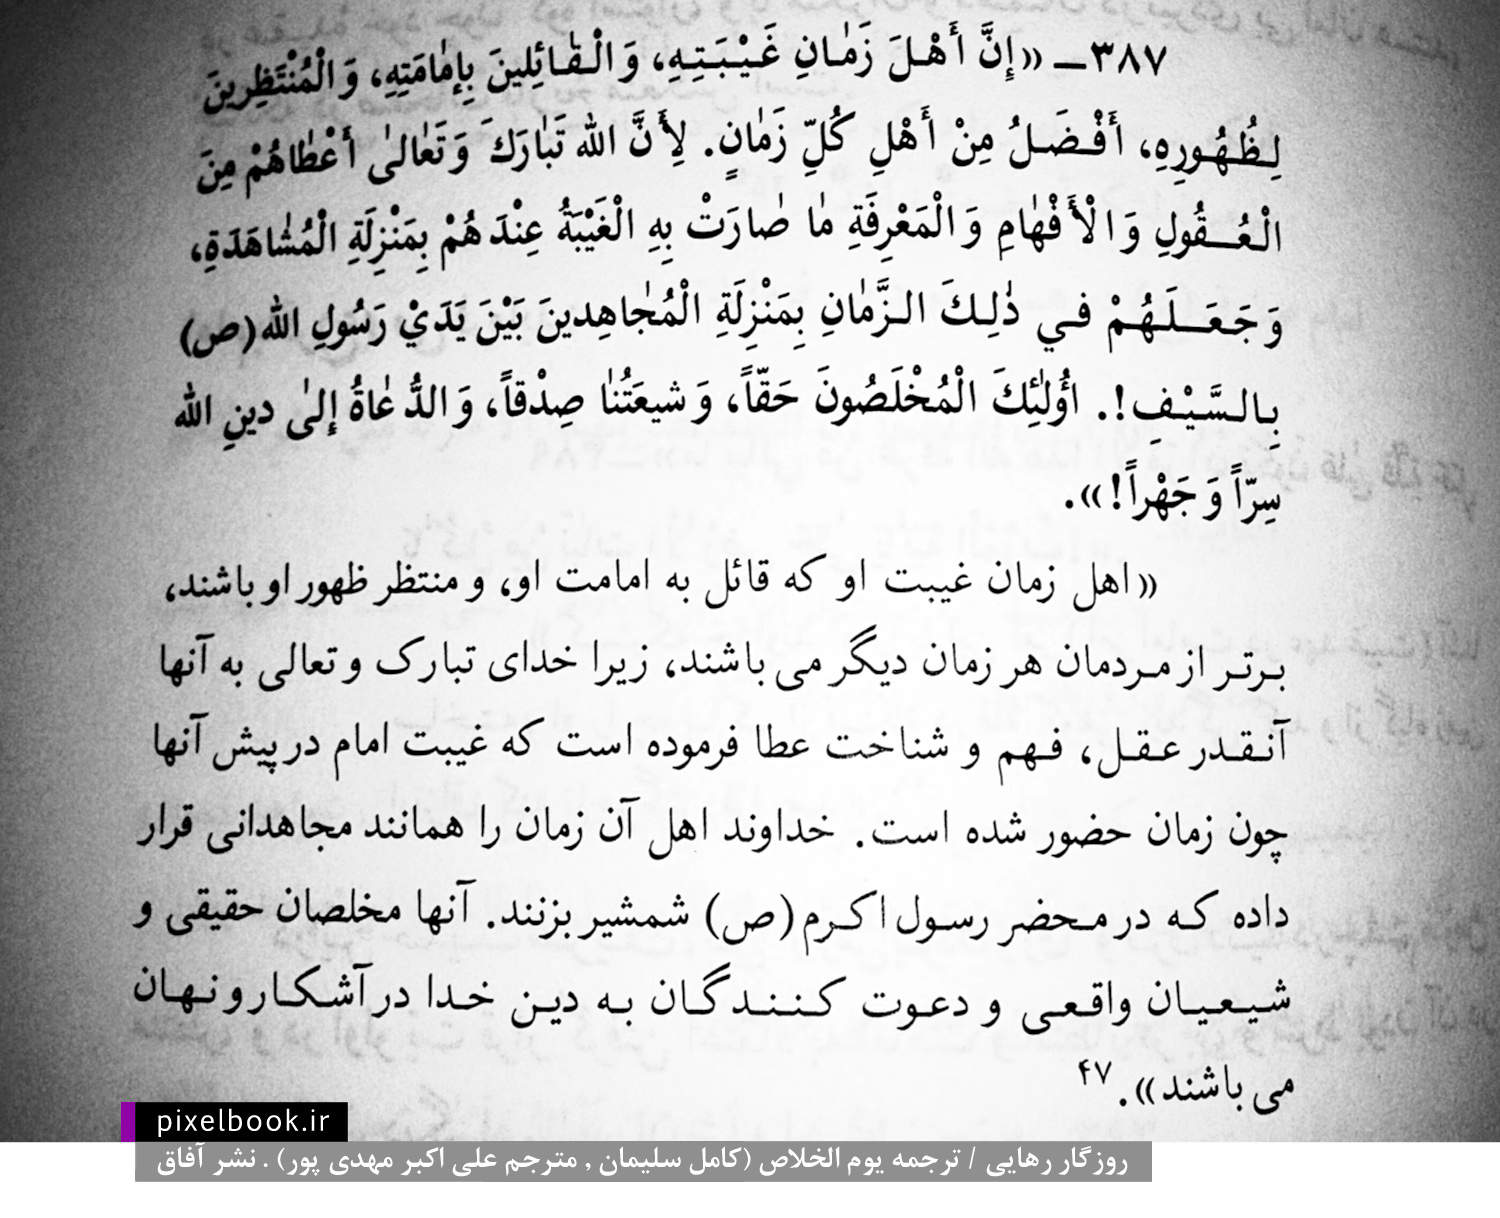 ۳۸۷ــ «إِنَّ أَهْلَ زَمٰانِ غَيْبَتِهِ، وَ الْقٰائِلِينَ بِإِمٰامَتِهِ، وَ الْمُنْتَظِرِينَ
لِظُهُورِهِ، أَفْضَلُ مِنْ أَهْلِ كُلِّ زَمٰانٍ. لِأَنَّ اللّٰه تَبٰارَكَ وَ تَعٰالىٰ أَعْطٰاهُمْ مِنَ
الْعُقُولِ وَ الْأَفْهٰامِ وَ الْمَعْرِفَةِ مٰا صٰارَتْ بِهِ الْغَيْبَةُ عِنْدَهُمْ بِمَنْزِلَةِ الْمُشٰاهَدَةِ،
وَ جَعَلَهُمْ في ذٰلِكَ الزَّمٰانِ بِمَنْزِلَةِ الْمُجٰاهِدينَ بَيْنَ يَدَيْ رَسُولِ اللّٰه (ص)
بِالسَّيْفِ!. أُولٰئِكَ الْمُخْلَصُونَ حَقّاً، وَ شيعَتُنٰا صِدْقاً، وَ الدُّعٰاةُ إِلىٰ دينِ اللّٰه
سِرّاً وَ جَهْراً!».
«اهل زمان غیبت او که قائل به امامت او، و منتظر ظهور او باشند،
برتر از مردمان هر زمان دیگر می باشند، زیرا خدای تبارک و تعالی به آنها
آنقدر عقل، فهم و شناخت عطا فرموده است که غیبت امام در پیش آنها
چون زمان حضور شده است. خداوند اهل آن زمان را همانند مجاهدانی قرار
داده که در محضر رسول اکرم (ص) شمشیر بزنند. آنها مخلصان حقیقی و
شیعیان واقعی و دعوت کنندگان به دین خدا در آشکار و نهان
می باشند».۴۷
pixelbook.ir
روزگار رهایی / ترجمه یوم الخلاص (کامل سلیمان , مترجم علی اکبر مهدی پور) . نشر آفاق